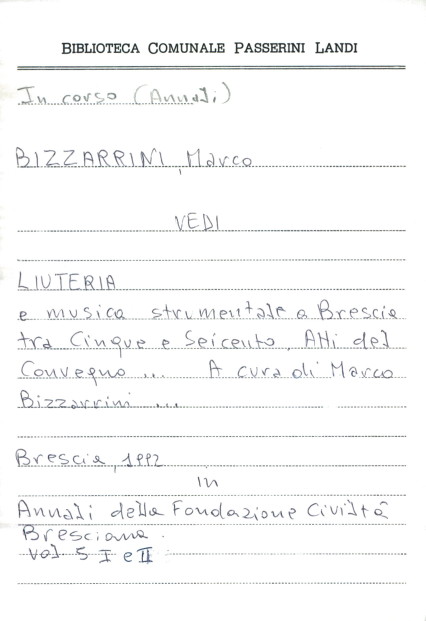 BIBLIOTECA COMUNALE PASSERINI LANDI
In corso (Annali)
BIZZARRINI, Marco
VEDI
LIUTERIA
e musica strumentale a Brescia
tra Cinque e Seicento, Atti del
Convegno ... A cura di Marco
Bizzarrini ...
Brescia, 1992
in
Annali della Fondazione Civiltà
Bresciana.
vol. 5 I e II